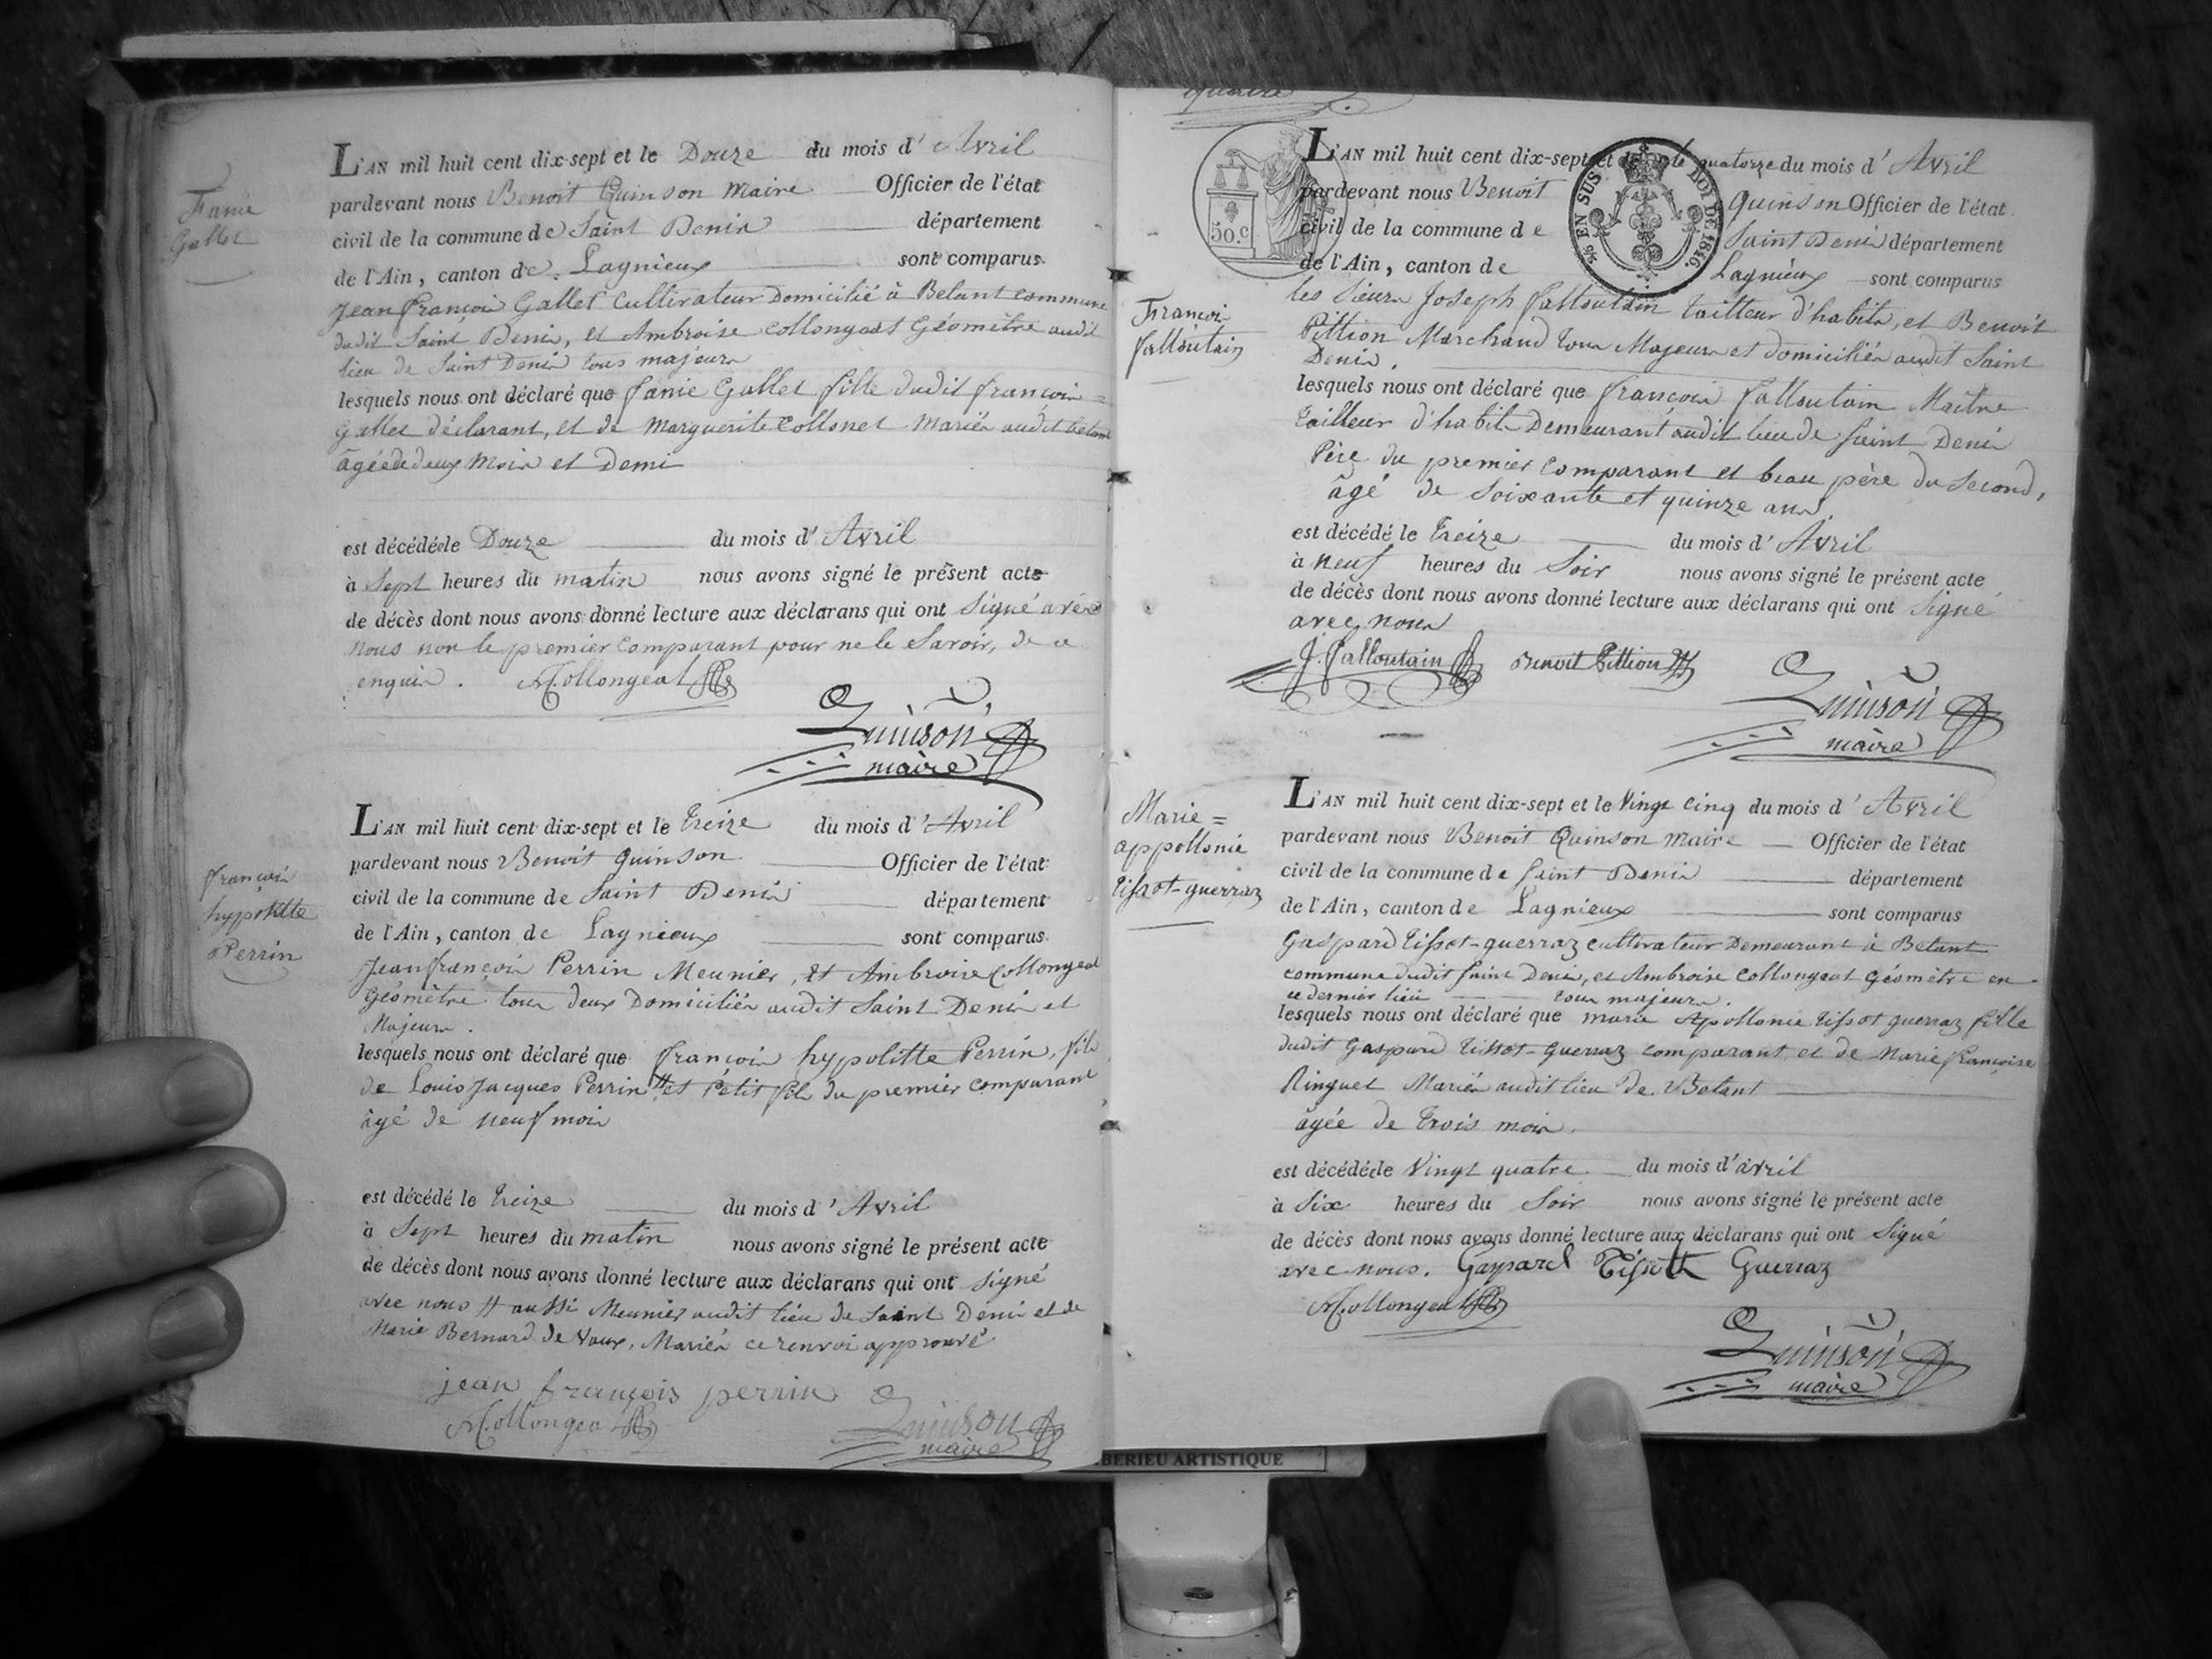 Fanie
Gallet
L'AN mil huit cent dix-sept et le Douze du mois d'Avril
pardevant nous Benoit Quinson Maire Officier de l'état
civil de la commune de Saint Denis département
de l'Ain, canton de Lagnieux sont comparus
Jean françois Gallet Cultivateur Domicilié à Betant commune
dudit Saint Denis, et Ambroise Collongeat Géomètre audit
lieu de Saint Denis tous majeurs
lesquels nous ont déclaré que fanie Gallet fille dudit françois =
Gallet déclarant, et de Marguerite Collonet Mariés audit betant
âgée de deux Mois et Demi
est décédée le Douze du mois d'Avril
à Sept heures du matin nous avons signé le présent acte
de décès dont nous avons donné lecture aux déclarans qui ont Signé avec
nous non le premier Comparant pour ne le Savoir, de ce
enquis. A Collongeat
Quinson
maire
françois
hypolitte
Perrin
L'AN mil huit cent dix-sept et le treize du mois d'Avril
pardevant nous Benoit Quinson Officier de l'état
civil de la commune de Saint Denis département
de l'Ain, canton de Lagnieux sont comparus
Jean françois Perrin Meunier, et Ambroise Collongeat
Géomètre tous deux Domiciliés audit Saint Denis et
Majeurs.
lesquels nous ont déclaré que françois hypolitte Perrin, fils
de Louis Jacques Perrin # et Petit fils du premier comparant
âgé de neuf mois
est décédé le treize du mois d'Avril
à Sept heures du matin nous avons signé le présent acte
de décès dont nous avons donné lecture aux déclarans qui ont Signé
avec nous # aussi Meunier audit lieu de Saint Denis et de
Marie Bernard de Vaux, Mariés ce renvoi approuvé
jean françois perrin
A Collongeat
Quinson
maire
50.c
5/c EN SUS LOI DE 1816.
françois
falloutain
L'AN mil huit cent dix-sept et le quatorze du mois d'Avril
pardevant nous Benoit Quinson Officier de l'état
civil de la commune de Saint Denis département
de l'Ain, canton de Lagnieux sont comparus
les Sieurs Joseph falloutain tailleur d'habits, et Benoit
Pittion Marchand tous Majeurs et domiciliés audit Saint
Denis.
lesquels nous ont déclaré que françois falloutain Maitre
tailleur d'habits Demeurant audit lieu de Saint Denis
Père du premier comparant et beau père du second,
âgé de Soixante et quinze ans
est décédé le treize du mois d'Avril
à neuf heures du Soir nous avons signé le présent acte
de décès dont nous avons donné lecture aux déclarans qui ont Signé
avec nous
J. falloutain Benoit Pittion
Quinson
maire
Marie =
appollonie
tissot-guerraz
L'AN mil huit cent dix-sept et le Vingt cinq du mois d'Avril
pardevant nous Benoit Quinson Maire Officier de l'état
civil de la commune de Saint Denis département
de l'Ain, canton de Lagnieux sont comparus
Gaspard tissot-guerraz cultivateur Demeurant à Betant
commune dudit Saint Denis, et Ambroise Collongeat Géomètre en
ce dernier lieu tous majeurs.
lesquels nous ont déclaré que marie Apollonie tissot guerraz fille
dudit Gaspard tissot-guerraz comparant et de Marie françoise
Ringuet Mariés audit lieu de Betant
âgée de trois mois.
est décédée le Vingt quatre du mois d'avril
à Six heures du Soir nous avons signé le présent acte
de décès dont nous avons donné lecture aux déclarans qui ont Signé
avec nous. Gaspard Tissott Guerraz
A Collongeat
Quinson
maire
BERIEU ARTISTIQUE